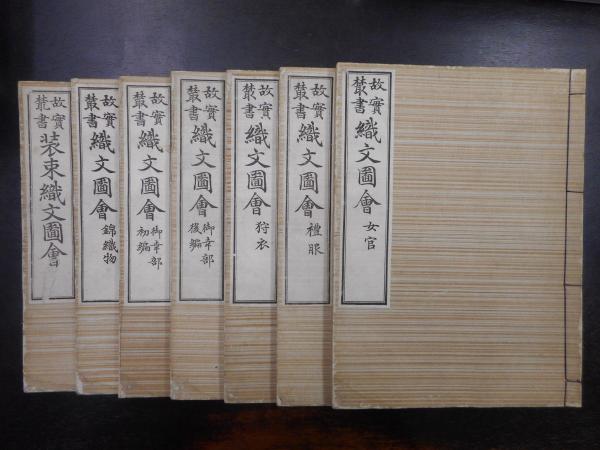 故實叢書 織文圖會 女官
故實叢書 織文圖會 禮服
故實叢書 織文圖會 狩衣
故實叢書 織文圖會 御幸部後編
故實叢書 織文圖會 御幸部初編
故實叢書 織文圖會 錦織物
故實叢書 装束織文圖會